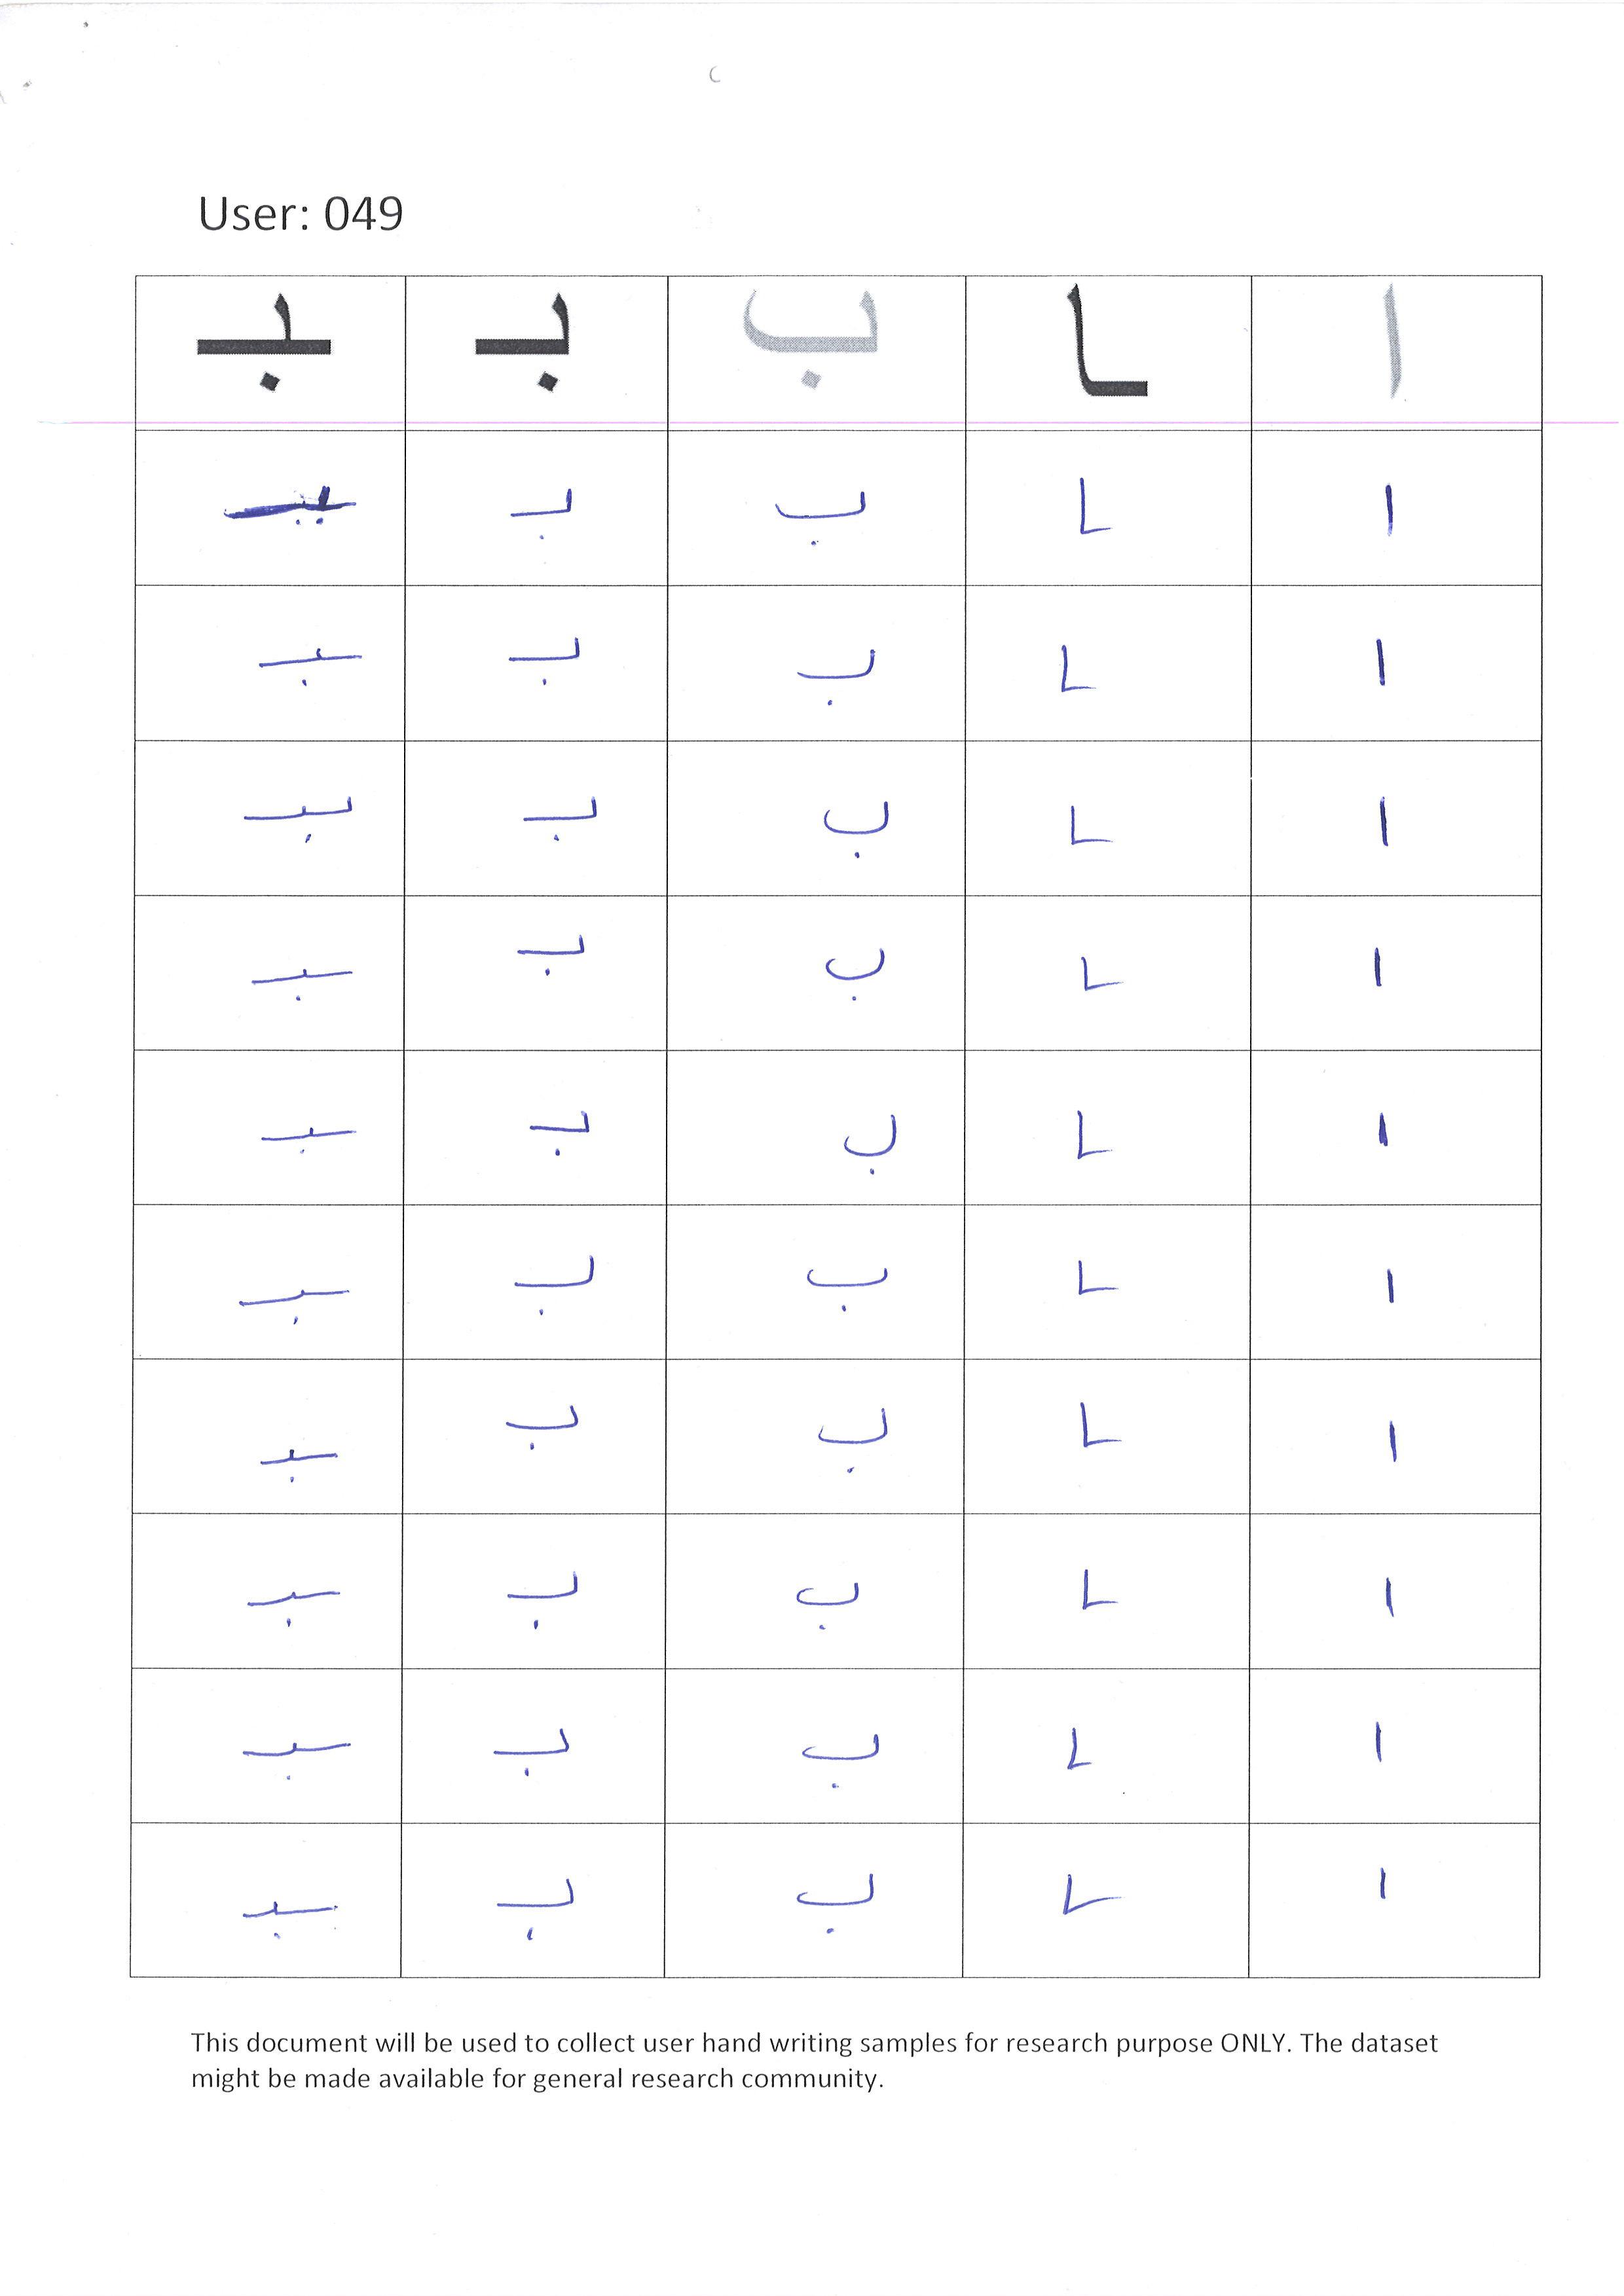 User: 049
ا ـا ب بـ ـبـ
ا ـا ب بـ
ا ـا ب بـ ـبـ
ا ـا ب بـ ـبـ
ا ـا ب بـ ـبـ
ا ـا ب بـ ـبـ
ا ـا ب بـ ـبـ
ا ـا ب بـ ـبـ
ا ـا ب بـ ـبـ
ا ـا ب بـ ـبـ
ا ـا ب بـ ـبـ
This document will be used to collect user hand writing samples for research purpose ONLY. The dataset
might be made available for general research community.